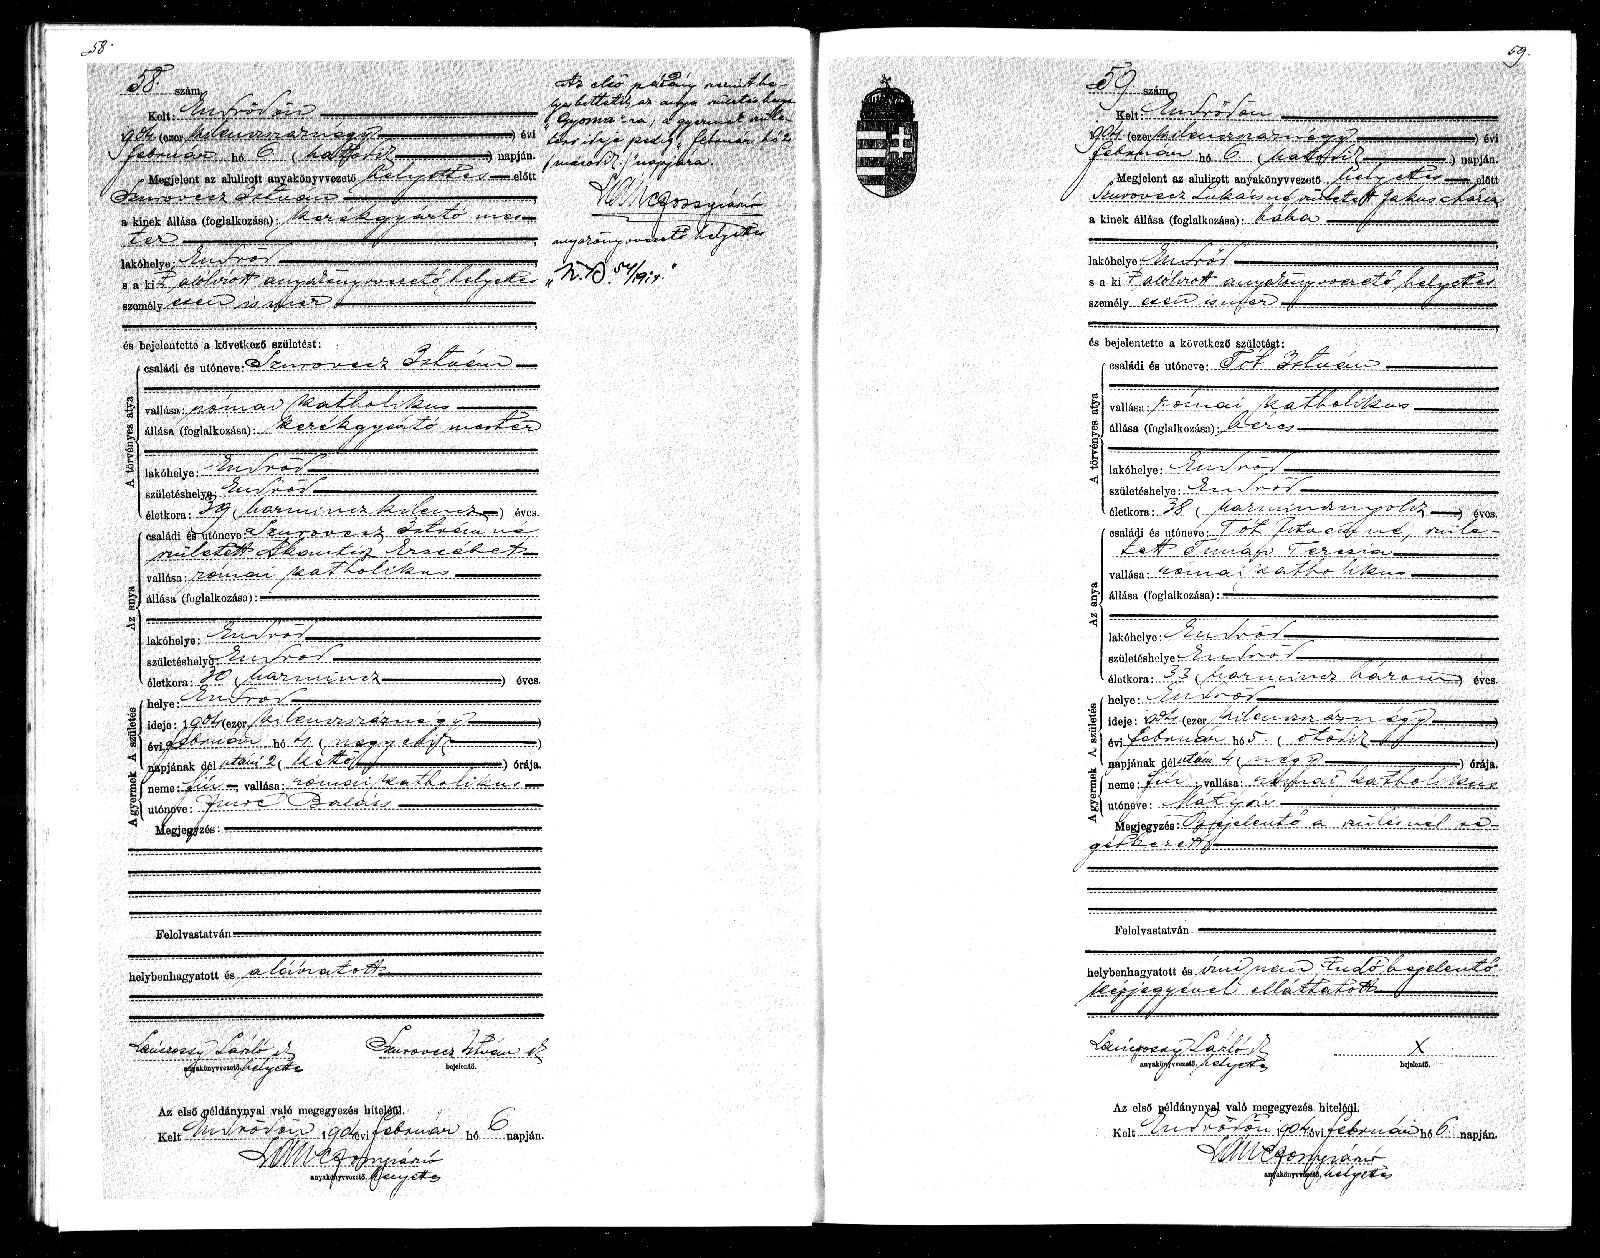 58.
58. szám.
Kelt: Endrődön
1904 (ezer kilenczszáznégy) évi
február hó 6 (hatodik) napján.
Megjelent az alulirott anyakönyvvezető helyettes előtt
Szurovecz István,
a kinek állása (foglalkozása): kerékgyártó mes-
ter,
lakóhelye: Endrőd
s a kit alólirott anyakönyvvezető helyettes
személyesen ismer
és bejelentette a következő születést:
A törvényes atya
családi és utóneve: Szurovecz István
vallása: római katholikus
állása (foglalkozása): kerékgyártó mester
lakóhelye: Endrőd
születéshelye: Endrőd
életkora: 39 (harminczkilencz) éves.
Az anya
családi és utóneve: Szurovecz Istvánné
született Erzsébet
vallása: római katholikus
állása (foglalkozása):
lakóhelye: Endrőd
születéshelye: Endrőd
életkora: 30 (harmincz) éves.
A születés
helye: Endrőd
ideje: 1904 (ezer kilenczszáznégy)
évi február hó 4 (negyedik)
napjának dél utáni 2 (kettő) órája.
A gyermek
neme: fiú vallása: római katholikus
utóneve: Imre Balázs
Megjegyzés:
Felolvastatván
helybenhagyatott és aláiratott
Lánczossy László s
anyakönyvvezető helyettes
Szurovecz István sk
bejelentő.
Az első példánynyal való megegyezés hiteléül.
Kelt Endrődön 1904 évi február hó 6 napján.
anyakönyvvezető. helyettes
Az első példány szerint be-
az anya
Gyomára, a gyermek szüle-
tési ideje pedig február hó 2
(második) napjára.
anyakönyvvezető helyettes
59.
59 szám.
Kelt: Endrődön
1904 (ezer kilenczszáznégy) évi
február hó 6. (hatodik) napján.
Megjelent az alulirott anyakönyvvezető helyettes előtt
Szurovecz Lukácsné született Jakus
a kinek állása (foglalkozása): bába
lakóhelye: Endrőd
s a kit alólirott anyakönyvvezető helyettes
személyesen ismer
és bejelentette a következő születést:
A törvényes atya
családi és utóneve: Tót István
vallása: római katholikus
állása (foglalkozása): béres
lakóhelye: Endrőd
születéshelye: Endrőd
életkora: 38 (harmincznyolcz) éves.
Az anya
családi és utóneve: Tót Istvánné, szüle-
tett Terézia
vallása: római katholikus
állása (foglalkozása):
lakóhelye: Endrőd
születéshelye: Endrőd
életkora: 33 (harmincz három) éves.
A születés
helye: Endrőd
ideje: 1904 (ezer kilenczszáznégy)
évi február hó 5. (ötödik)
napjának dél utáni 4 (négy) órája.
A gyermek
neme: fiú vallása: római katholikus
utóneve: Mátyás
Megjegyzés: Bejelentő a szülésnél se-
gédkezett
Felolvastatván
helybenhagyatott és irni nem tudó bejelentő
kézjegyével elláttatott
Lánczossy László sk
anyakönyvvezető. helyettes
X
bejelentő.
Az első példánynyal való megegyezés hiteléül.
Kelt Endrődön 1904 évi február hó 6 napján.
anyakönyvvezető. helyettes